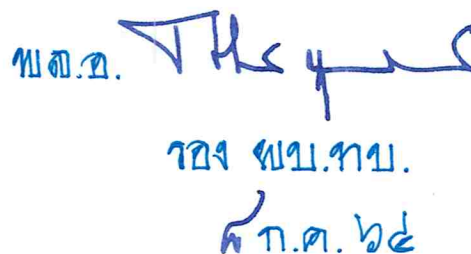 พล.อ.
รอง ผบ.ทบ.
ก.ค. ๖๔